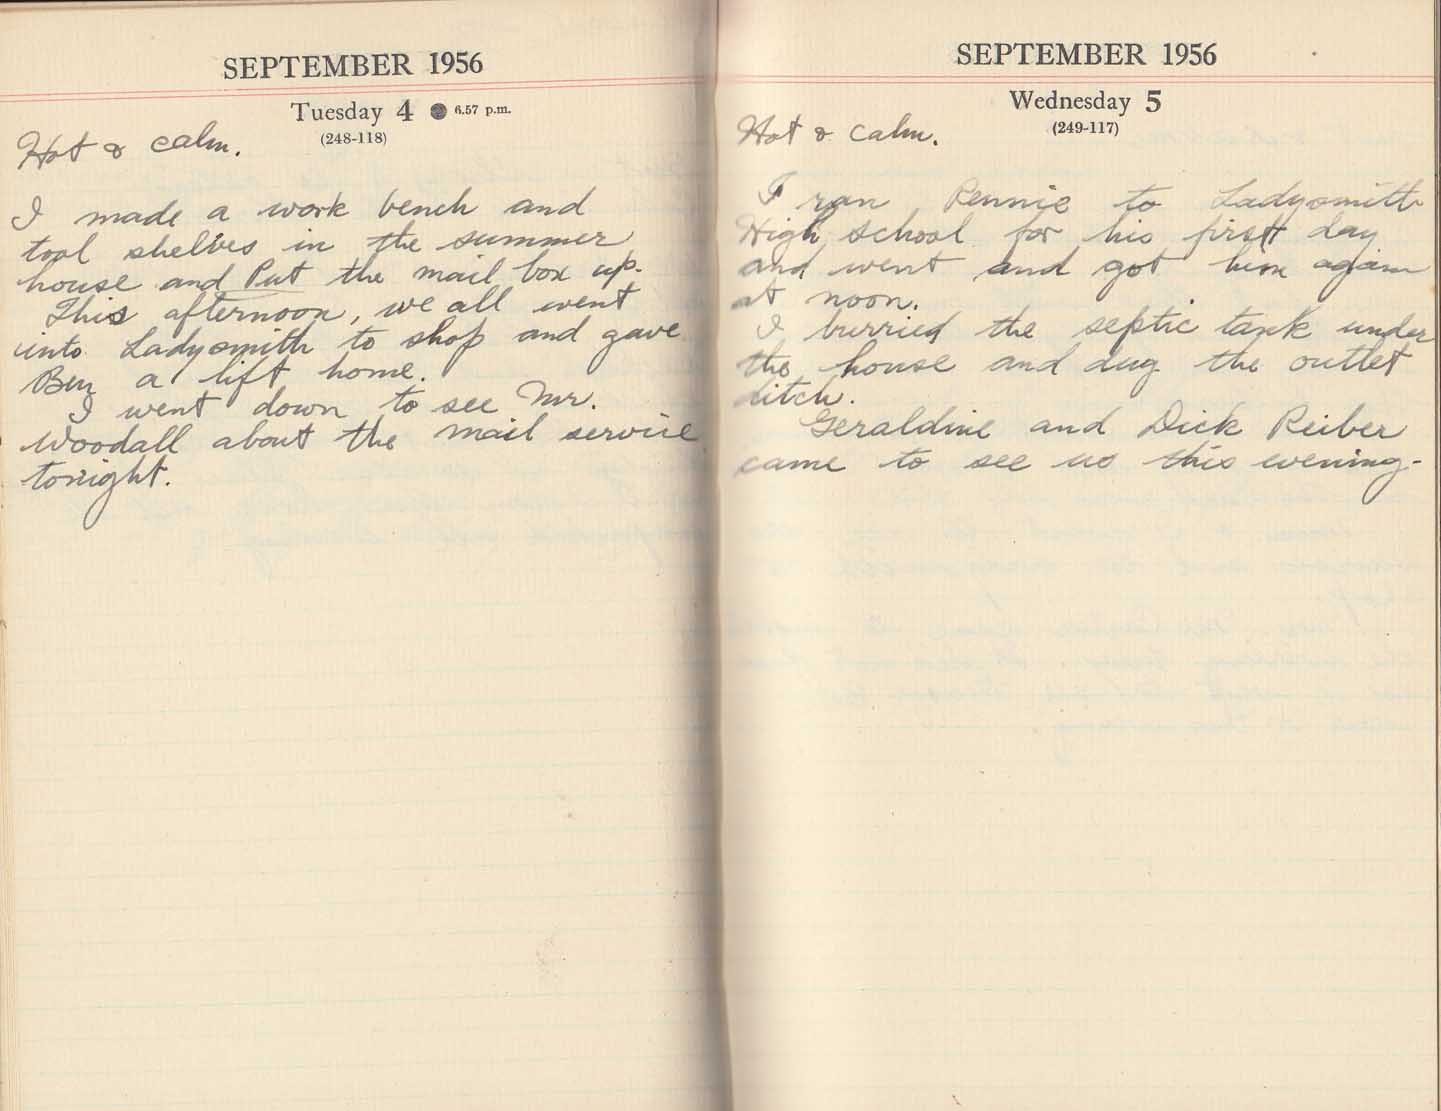 SEPTEMBER 1956
Tuesday 4 ● 6.57 p.m.
(248-118)
Hot & calm.
I made a work bench and
tool shelves in the summer
house and Put the mail box up.
This afternoon, we all went
into Ladysmith to shop and gave
Ben a lift home.
I went down to see Mr.
Woodall about the mail service
tonight.
SEPTEMBER 1956
Wednesday 5
(249-117)
Hot & calm.
I ran Rennie to Ladysmith
High school for his first day
and went and got him again
at noon.
I burried the septic tank under
the house and dug the outlet
ditch.
Geraldine and Dick Reiber
came to see us this evening.